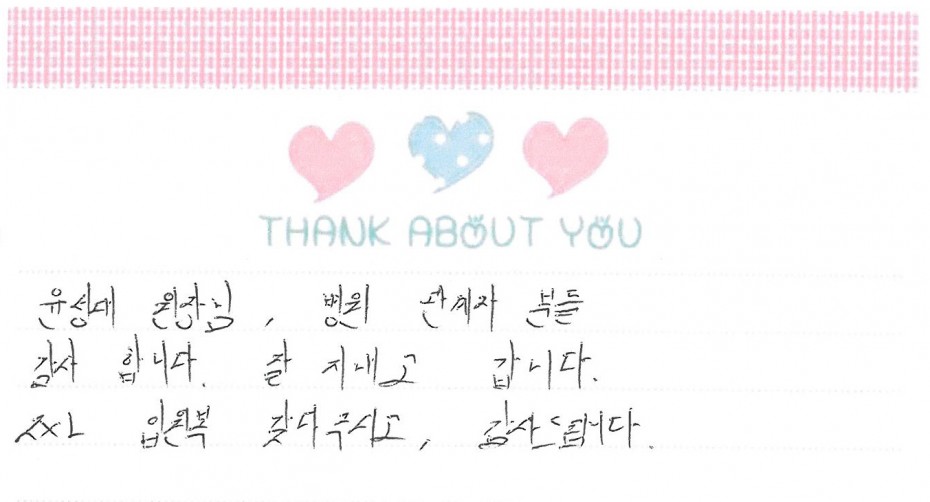 THANK ABOUT YOU
유성대 원장님, 병원 관계자 분들
감사 합니다. 잘 지내고 갑니다.
XXL 입원복 갖다주시고, 감사드립니다.